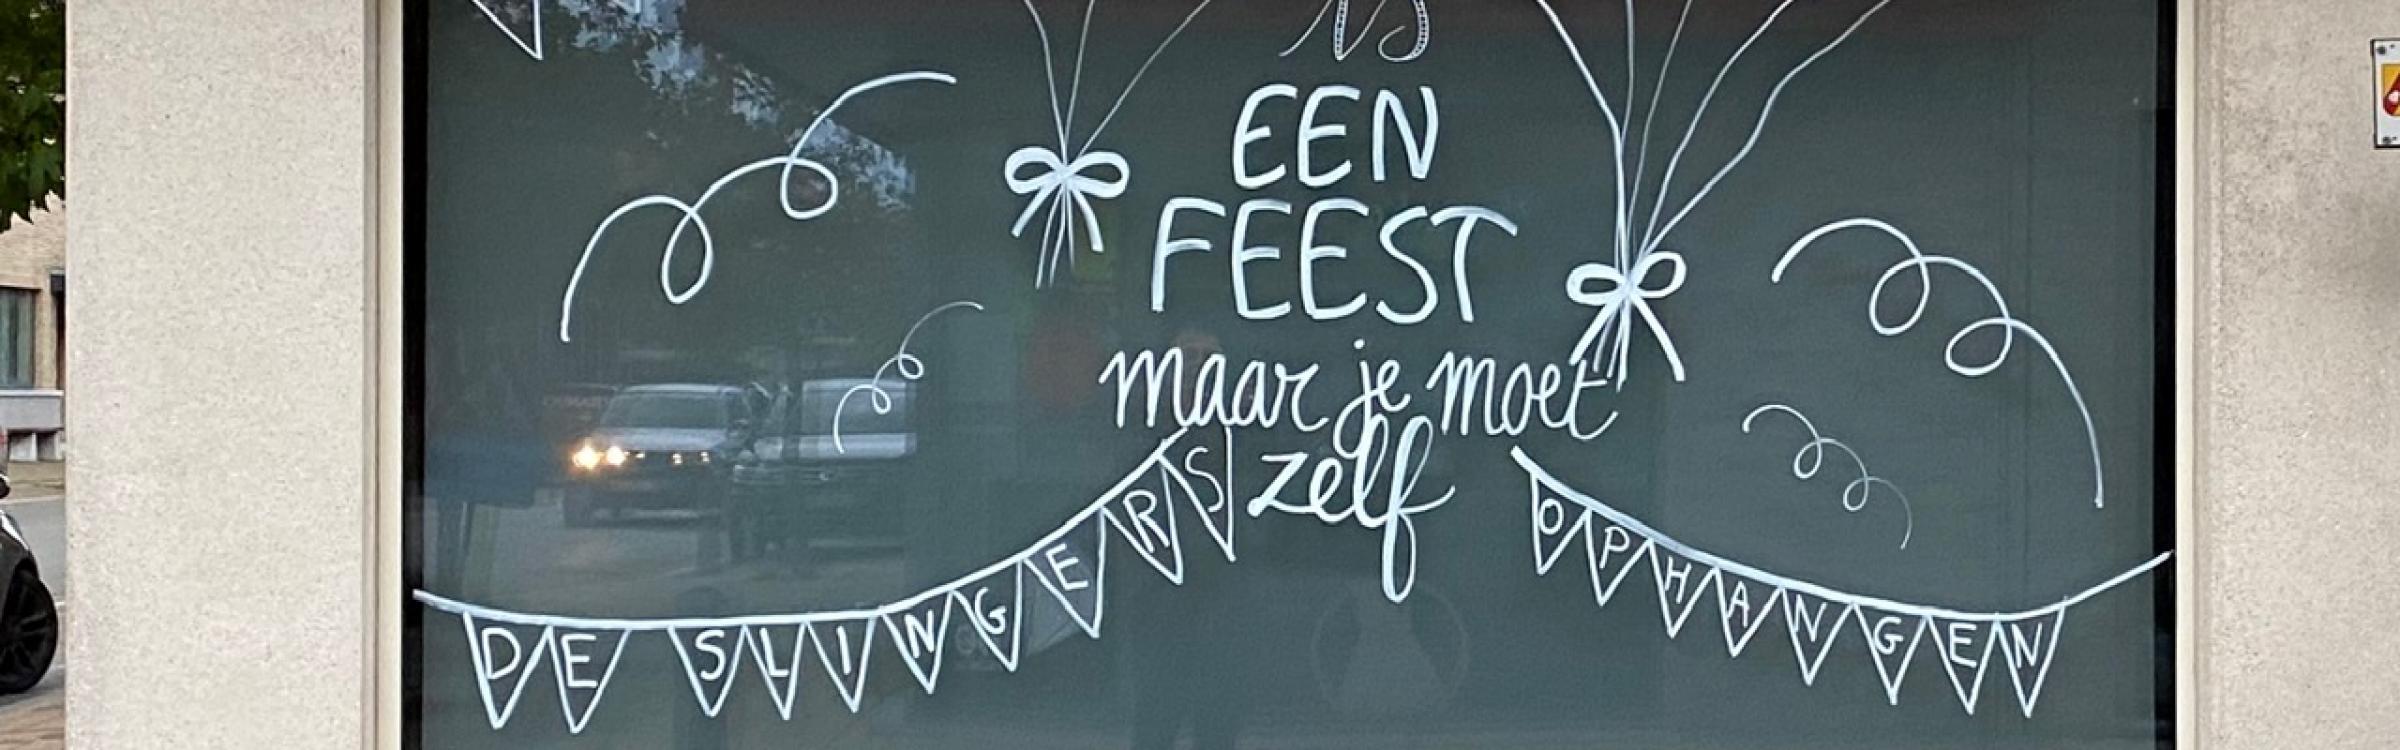 is
EEN
FEEST
maar je moet
zelf
DE SLINGERS OPHANGEN